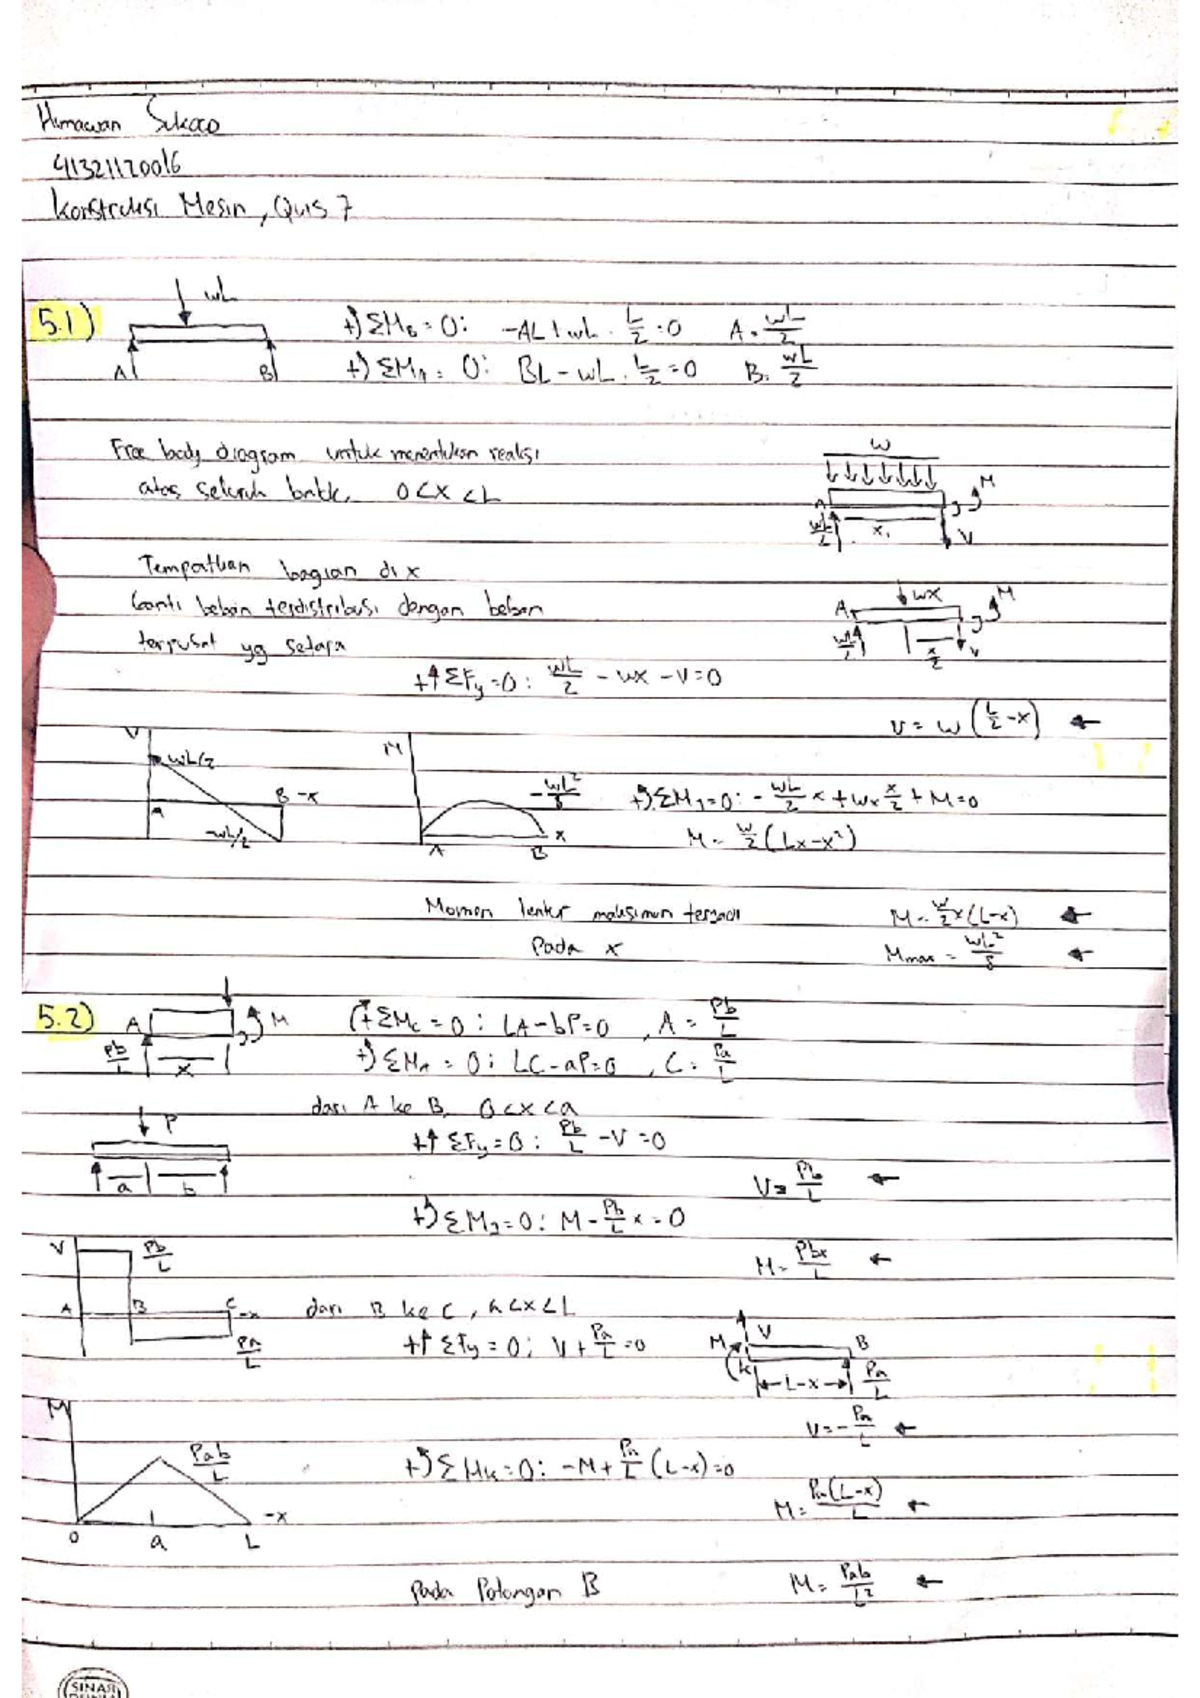 Himawan Sukoco
41321120016
Konstruksi Mesin, Quis 7
5.1)
wL
A B
+) ΣM_B = 0: -AL + wL . L/2 = 0 A = wL/2
+) ΣM_A = 0: BL - wL . L/2 = 0 B = wL/2
Free body diagram untuk menentukan reaksi
atas seluruh 0 < x < L
w
A M
wL/2 x, V
Tempatkan bagian di x
Ganti beban terdistribusi dengan beban
terpusat yg setara
wx
A M
wL/2 x/2 V
+↑ ΣFy = 0: wL/2 - wx - V = 0
V = w (L/2 - x) ←
V
wL/2
A B -x
-wL/2
M
-wL²/8
A B x
+) ΣM_J = 0: - wL/2 x + wx x/2 + M = 0
M = w/2 (Lx - x²)
Momen lentur maksimum terjadi
Pada x
M = w/2 x (L-x) ←
Mmax = wL²/8 ←
5.2)
A M
Pb/L x
(+ ΣMc = 0: LA - bP = 0, A = Pb/L
+) ΣM_A = 0: LC - aP = 0, C = Pa/L
dari A ke B, 0 < x < a
P
a b
+↑ ΣFy = 0: Pb/L - V = 0
V = Pb/L ←
+) ΣM_J = 0: M - Pb/L x = 0
M = Pbx/L ←
V
Pb/L
A B C -x
Pa/L
dari B ke C, a < x < L
+↑ ΣFy = 0; V + Pa/L = 0
M V B
K L-x Pa/L
V = - Pa/L ←
M
Pab/L
0 a L -x
+) ΣM_K = 0: -M + Pa/L (L-x) = 0
M = Pa(L-x)/L ←
Pada Potongan B
M = Pab/L² ←
SINAR
DUNIA